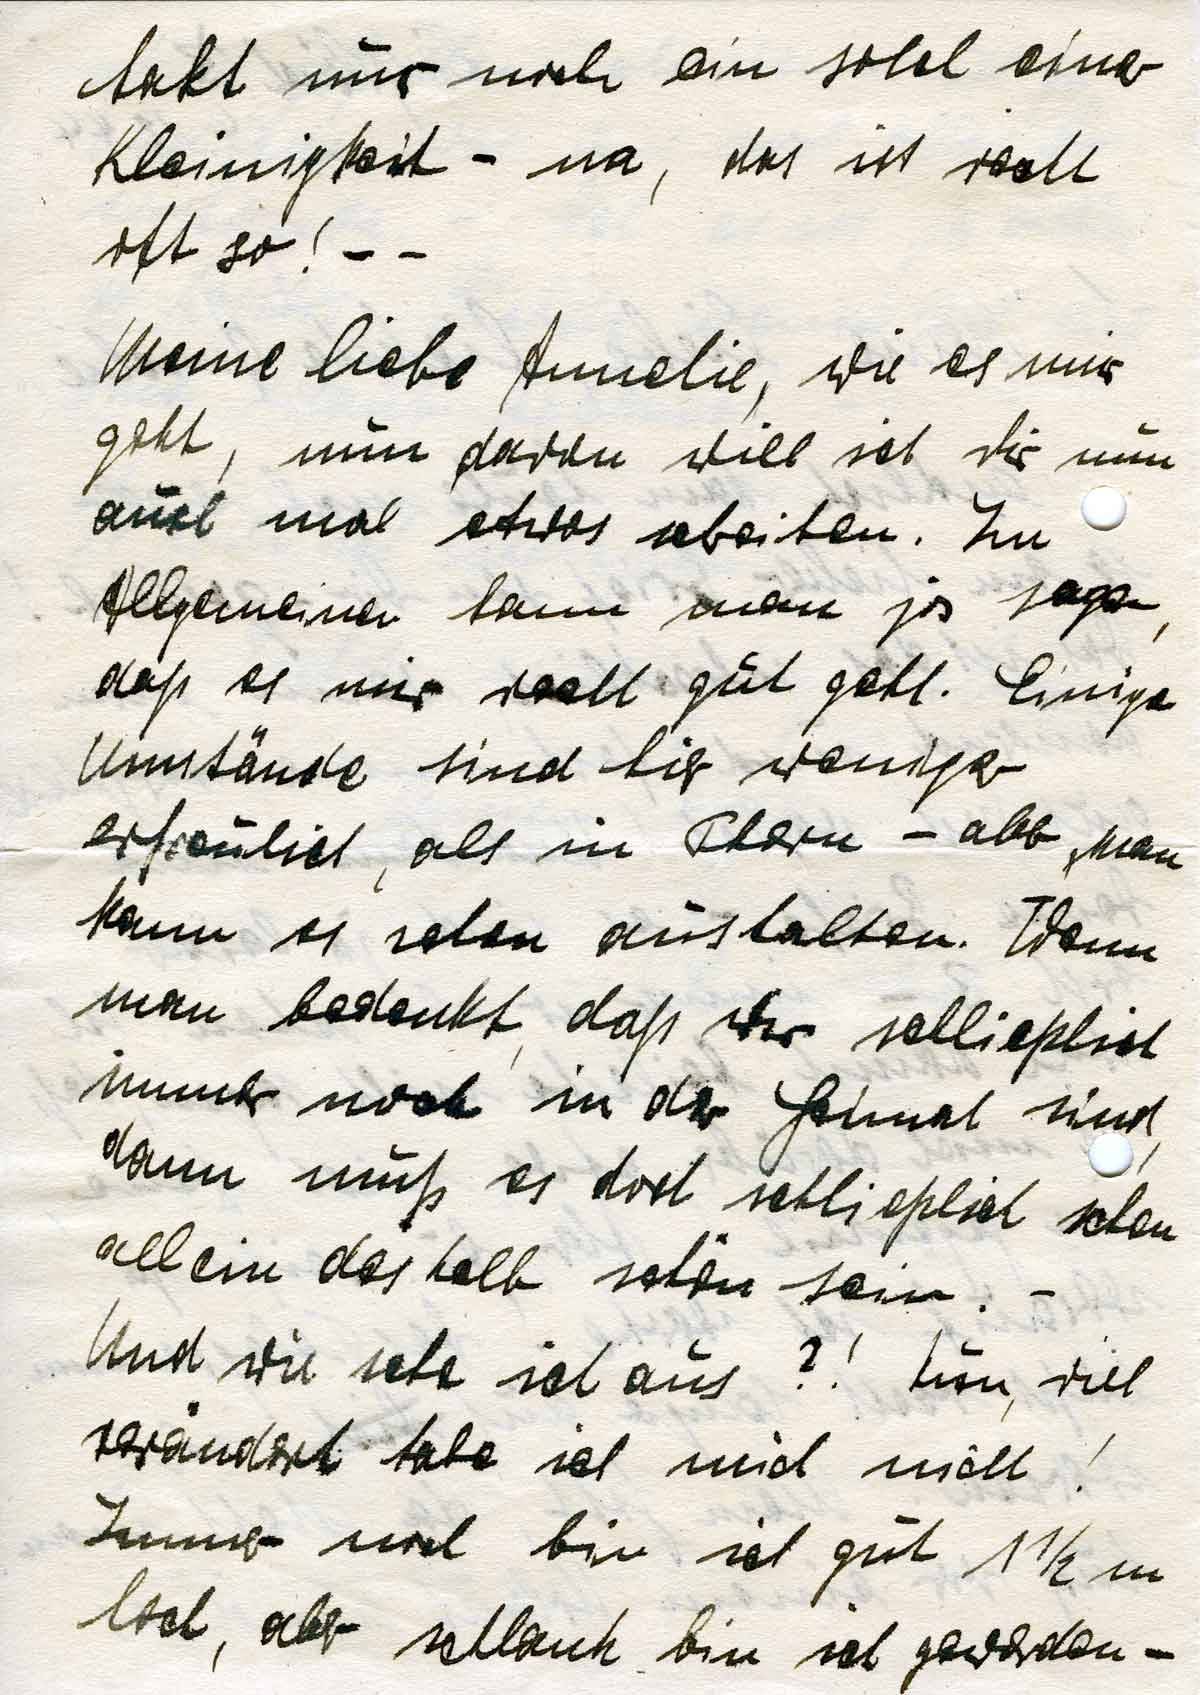 hakt nur noch ein solch eine
Kleinigkeit - na, das ist recht
oft so! - -
Meine liebe Annelie, wie es mir
geht, nun davon will ich dir nun
auch mal etwas schreiben. Im
Allgemeinen kann man ja sagen,
daß es mir recht gut geht. Einige
Umstände sind hier weniger
erfreulich, als in Thorn - aber man
kann es schon aushalten. Wenn
man bedenkt, daß wir schließlich
immer noch in der Heimat sind,
dann muß es doch schließlich schon
allein deshalb schön sein. -
Und wie sehe ich aus ?! Nun, viel
verändert habe ich mich nicht!
Immer noch bin ich gut 1 1/2 m
hoch, aber schlank bin ich geworden -